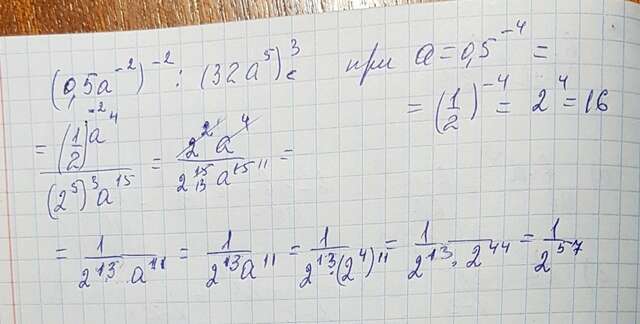 (0,5a⁻²)⁻² : (32a⁵)³ при a = 0,5⁻⁴ =
= (1/2)⁻⁴ = 2⁴ = 16
= (1/2)⁻² a⁴ / (2⁵)³ a¹⁵ = 2² a⁴ / 2¹⁵ 13 a¹⁵ 11 =
= 1 / 2¹³ a¹¹ = 1 / 2¹³ a¹¹ = 1 / 2¹³ · (2⁴)¹¹ = 1 / 2¹³ · 2⁴⁴ = 1 / 2⁵⁷